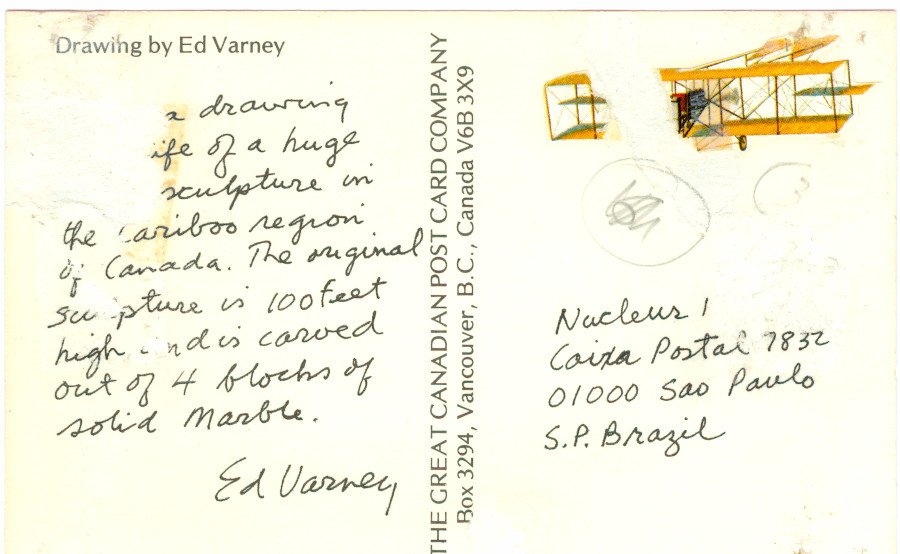 Drawing by Ed Varney
drawing
of a huge
sculpture in
the ariboo region
of Canada. The original
pture is 100 feet
high nd is carved
out of 4 blocks of
solid Marble.
Ed Varney
THE GREAT CANADIAN POST CARD COMPANY
Box 3294, Vancouver, B.C., Canada V6B 3X9
Nucleus 1
Caixa Postal 7832
01000 Sao Paulo
S.P. Brazil